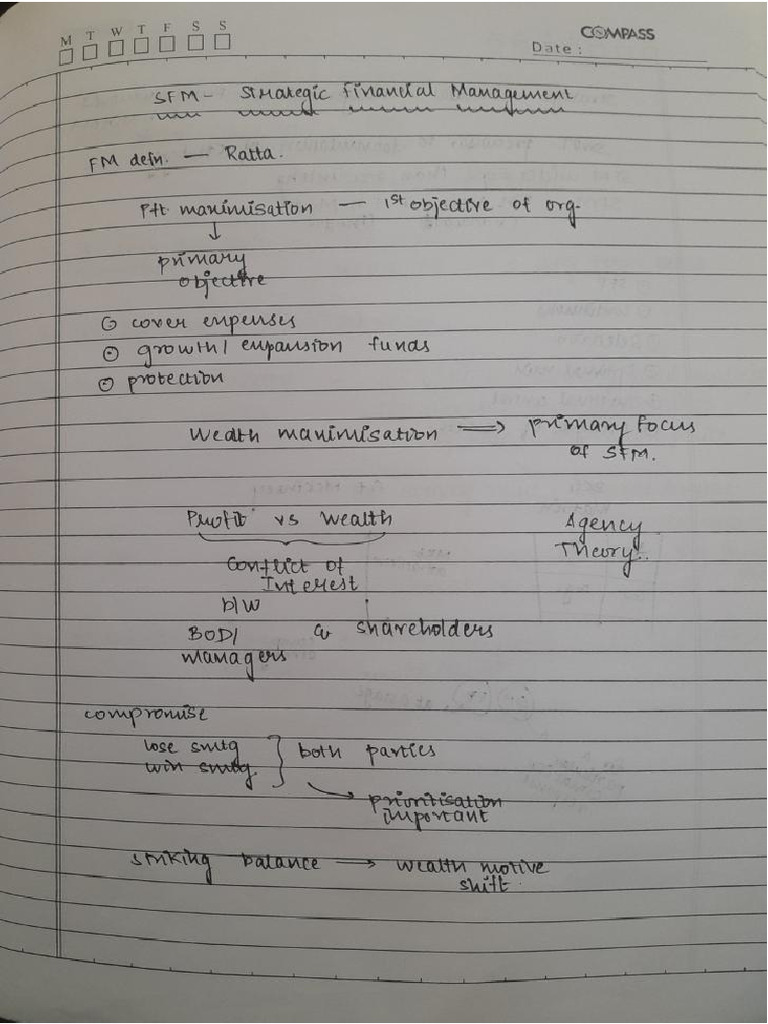 M T W T F S S
COMPASS
Date :
SFM - Strategic Financial Management
FM defn. — Ratta.
Pft maximisation — 1st objective of org.
↓
primary
objective
⊙ cover expenses
⊙ growth / expansion funds
⊙ protection
Wealth maximisation ⟹ primary focus
of SFM.
Profit vs Wealth
Agency
Theory..
Conflict of
Interest
b/w
BOD/ & shareholders
managers
compromise
lose smtg } both parties
win smtg.
→ prioritisation
important
striking balance → wealth motive
shift.